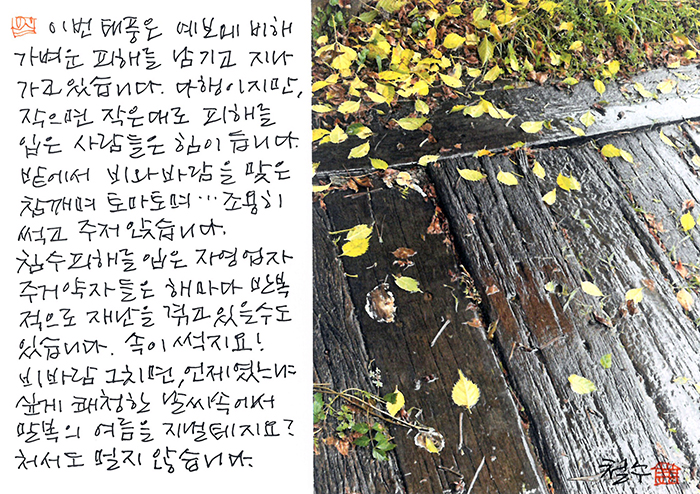 이번 태풍은 예보에 비해
가벼운 피해를 남기고 지나
가고 있습니다. 다행이지만,
작으면 작은대로 피해를
입은 사람들은 힘이 듭니다.
밭에서 비와 바람을 맞은
참깨며 토마토며… 조용히
썩고 주저 앉습니다.
침수피해를 입은 자영업자
주거약자들은 해마다 반복
적으로 재난을 겪고 있을수도
있습니다. 속이 썩지요!
비바람 그치면, 언제였느냐
싶게 쾌청한 날씨속에서
말복의 여름을 지낼테지요?
처서도 멀지 않습니다.
철수